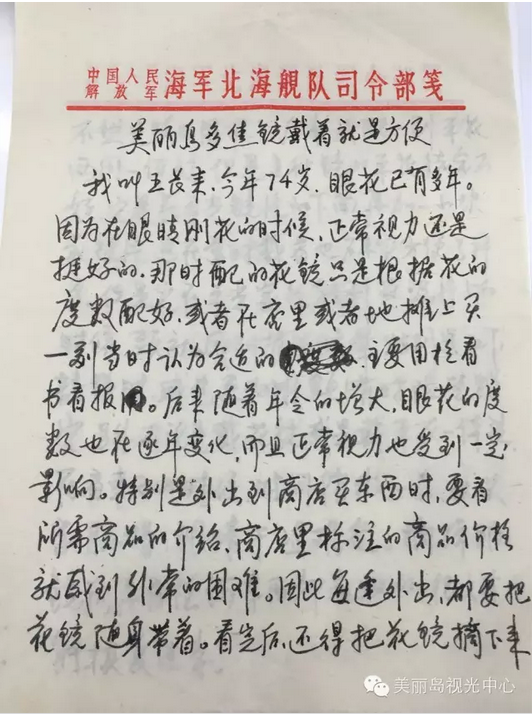 中国人民
解放军 海军北海舰队司令部笺
美丽岛多焦镜戴着就是方便
我叫王长来，今年74岁，眼花已有多年。
因为在眼睛刚花的时候，正常视力还是
挺好的，那时配的花镜只是根据花的
度数配好，或者在店里或者地摊上买
一副当时认为合适的 主要用于看
书看报 。后来随着年令的增大，眼花的度
数也在逐年变化，而且正常视力也受到一定
影响。特别是外出到商店买东西时，要看
所需商品的介绍、商店里标注的商品价格
就感到非常的困难。因此每逢外出，都要把
花镜随身带着。看完后，还得把花镜摘下来
美丽岛视光中心